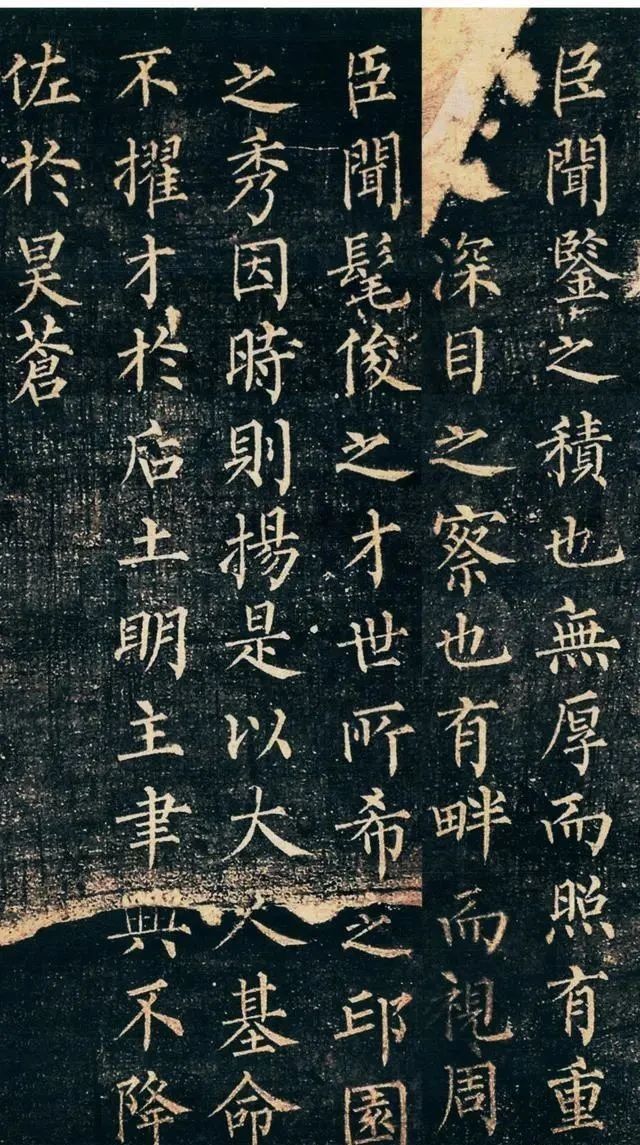 臣聞鑒之積也無厚而照有重
深目之察也有畔而視周
臣聞髦俊之才世所希之邱園
之秀因時則揚是以大人基命
不擢才於后土眀主聿興不降
佐於昊蒼